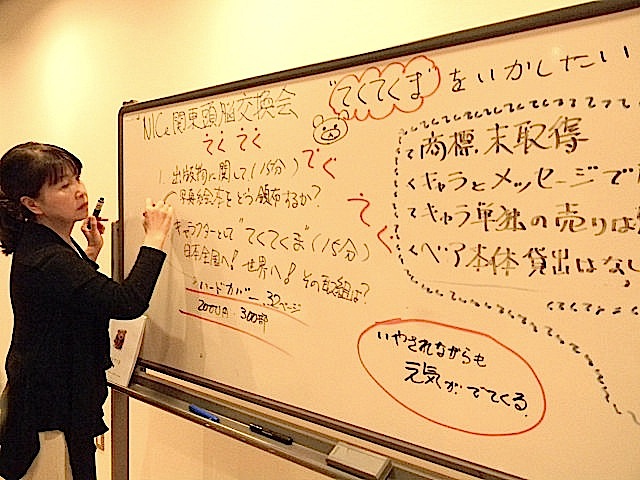 NICe関東頭脳交換会
てく てく
てく
てく
1. 出版物に関して(15分)
写真絵本をどう頒布するか?
キャラクターとして"てくてくま"(15分)
日本全国へ! 世界へ! その取組は?
ハードカバー、32ページ
2000円 300部
"てくてくま"をいかしたい
商標未取得
キャラとメッセージで
キャラ単独の売りは
ベア本体貸出はなし
いやされながらも
元気がでてくる